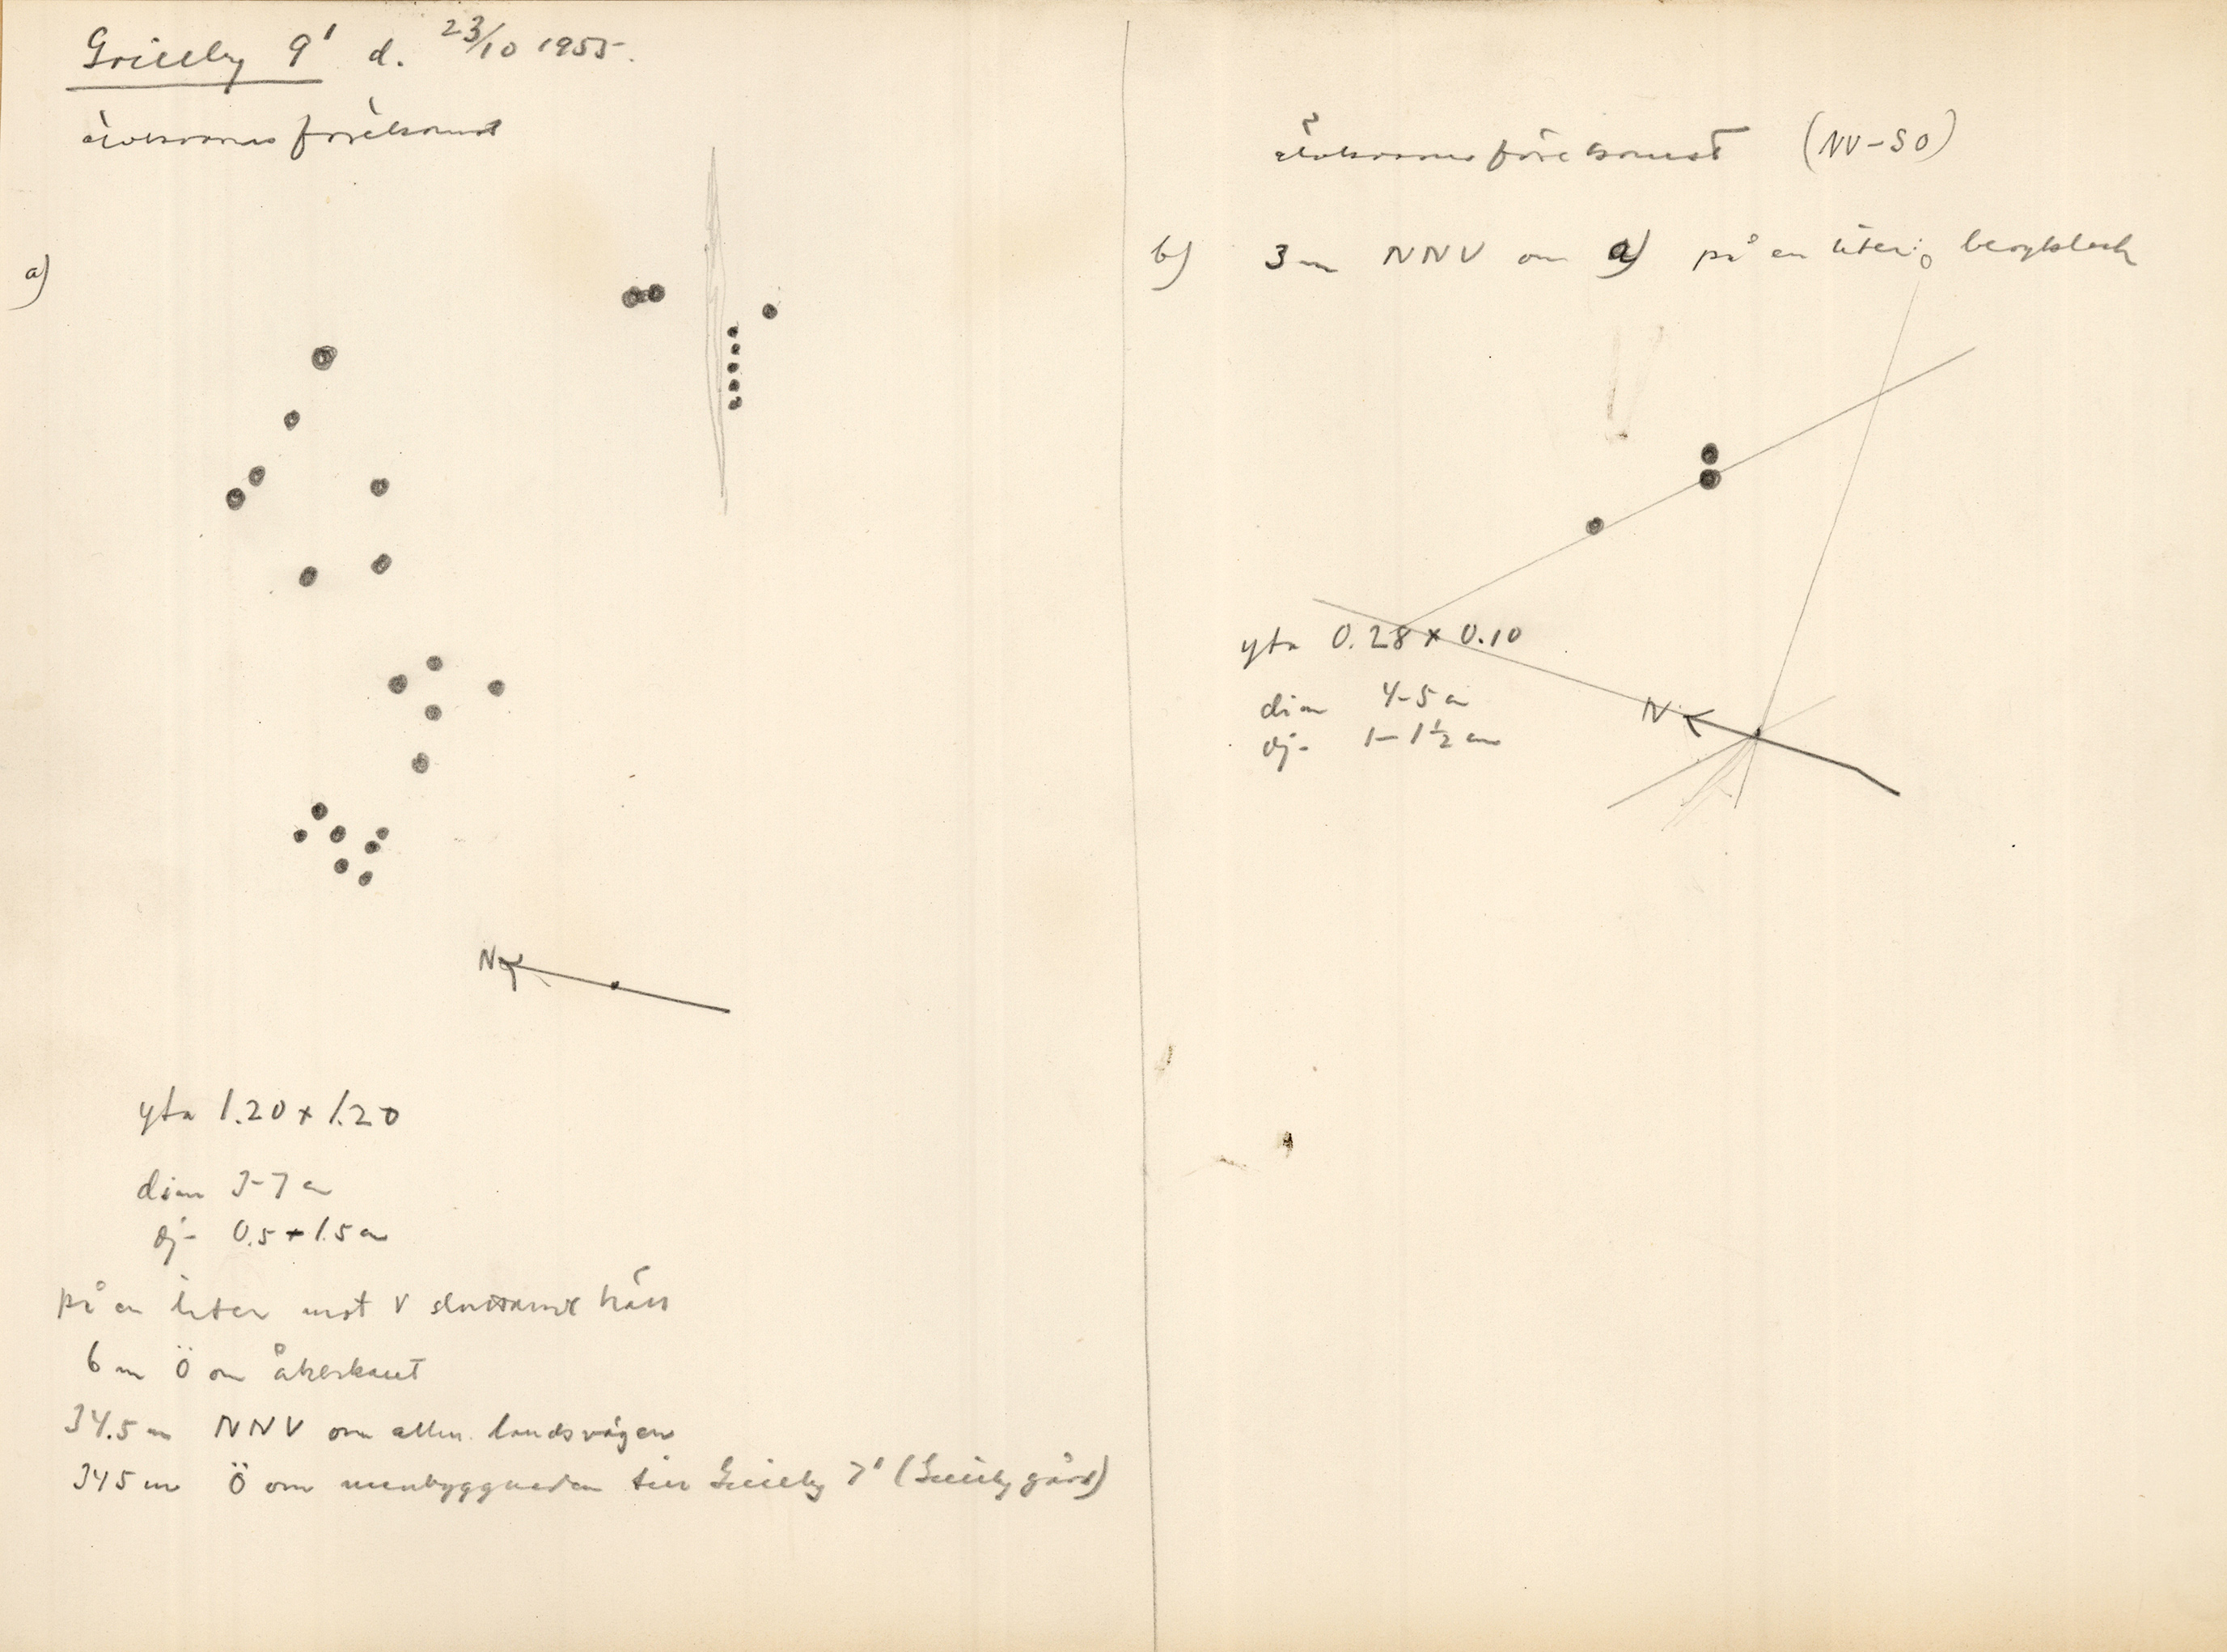 Grilleby 9¹ d. 23/10 1955.
älvkvarnsförekomst
a)
N
yta 1.20 x 1.20
dim 3-7 cm
dj- 0.5 + 1.5 cm
på en liten mot V sluttande häll
6 m Ö om åkerkant
34.5 m NNV om allm. landsvägen
345 m Ö om manbyggnaden till Grilleby 7¹ (Grilleby gård)
älvkvarnsförekomst (NV-SO)
b) 3 m NNV om a) på en liten bergklack
yta 0.28 x 0.10
dim 4-5 cm
dj- 1-1½ cm
N